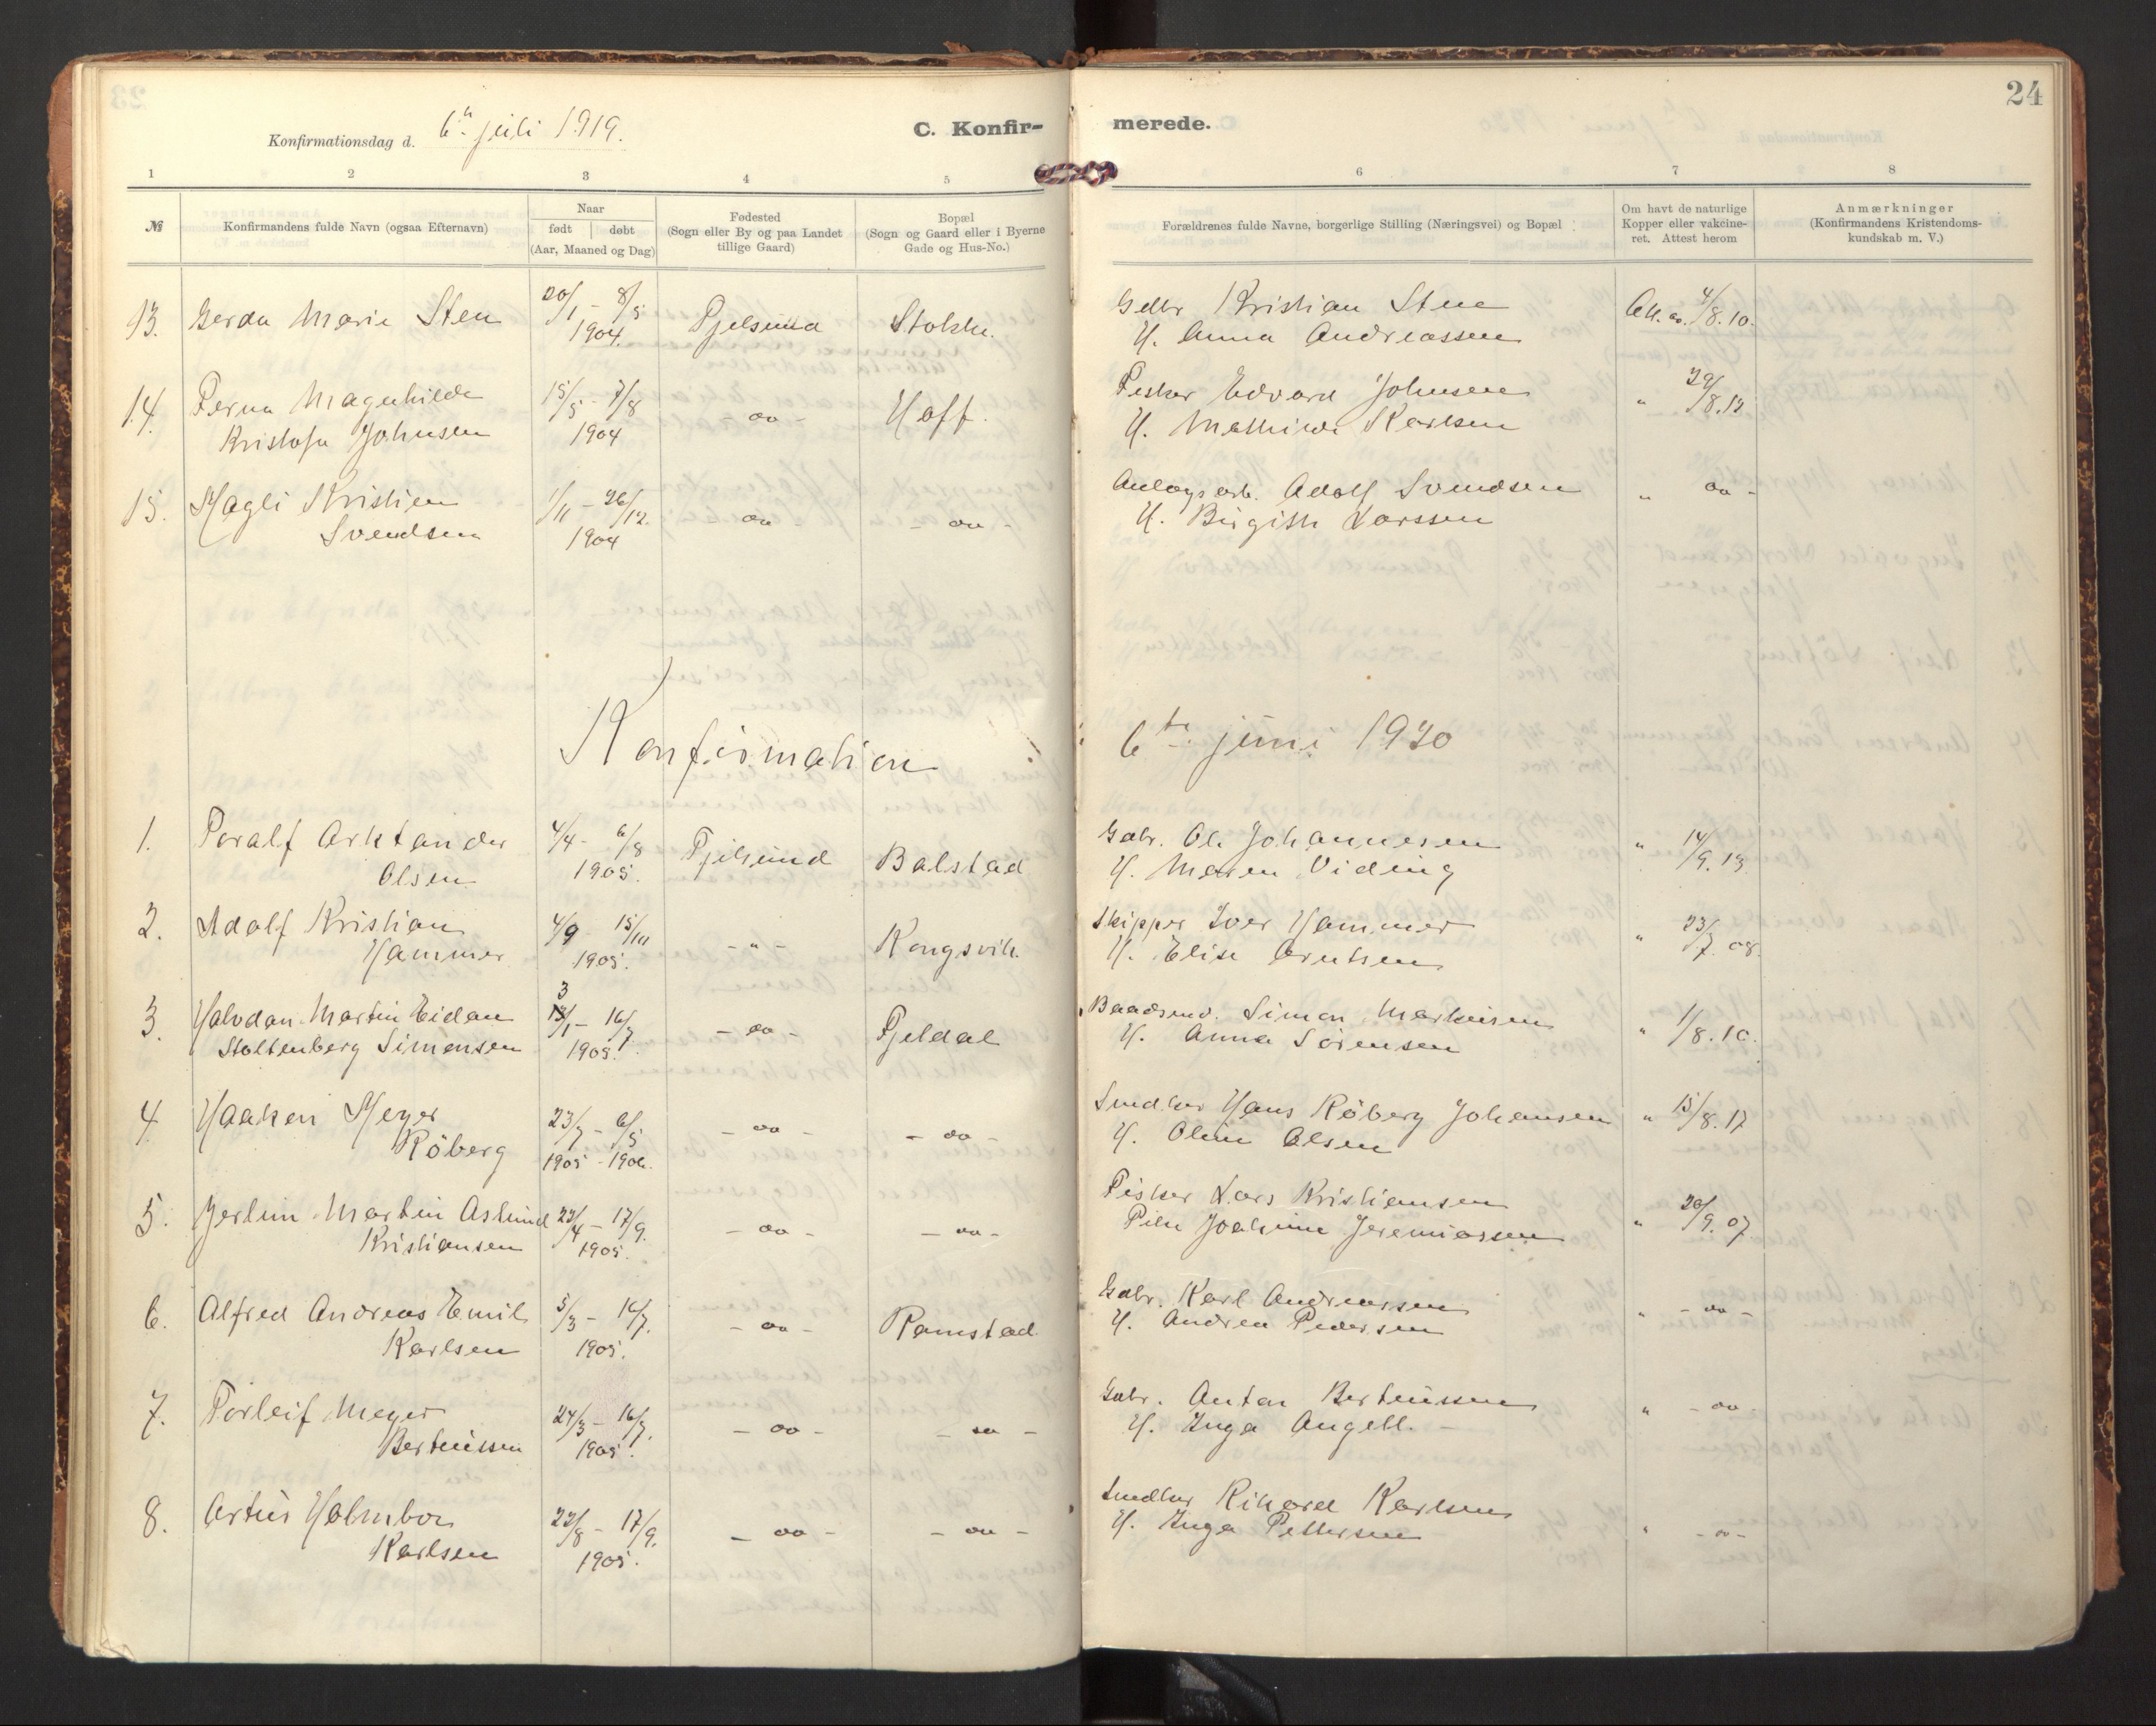 24
Konfirmationsdag d. 6te juli 1919.
C. Konfir-
merede.
1 2 3 4 5 6 7 8
№
Konfirmandens fulde Navn (ogsaa Efternavn)
Naar
født | døbt
(Aar, Maaned og Dag)
Fødested
(Sogn eller By og paa Landet
tillige Gaard)
Bopæl
(Sogn og Gaard eller i Byerne
Gade og Hus-No.)
Forældrenes fulde Navne, borgerlige Stilling (Næringsvei) og Bopæl
Om havt de naturlige
Kopper eller vakcine-
ret. Attest herom
Anmærkninger
(Konfirmandens Kristendoms-
kundskab m. V.)
13. Gerda Marie Sten 20/1 - 8/5 1904. Fjelsund Gdbr Kristian Stene
H. Anna Andreassen 4/8.10.
14. Magnhilde
Kristofa Johnsen 15/5 - 7/8 1904 - oo - Hoff. Fisker Edvard Johnsen
H. Mathilde Karlsen " 29/8.12
15. Magli Kristien
Svendsen 1/11 - 26/12. 1904 oo - oo - Anlægsarb. Adolf Svendsen
H. Birgith Larssen " oo -
Konfirmation 6te juni 1920
1. Toralf Arktander
Olsen 4/4 - 6/8 1905. Fjelsund Balstad Gdbr. Ole Johannesen
H. Maren Viding " 14/9.13
2. Adolf Kristian
Hammer 4/9 - 15/10 1905. - " - Kongsvik. Skipper Iver Hammer
H. Elise Arntsen " 23/7. 08.
3. Halvdan Martin Eidan
Stoltenberg Simonsen 3/1 - 16/7 1905. - oo - Fjeldal Baadsmd. Simon Martinsen
H. Anna Sørensen " 1/8.10.
4. Haakon Meyer
Röberg 23/7 - 6/5 1905 - 1906. - oo - - oo - Smdbr Hans Röberg Johansen
H. Oline Olsen " 15/8.17
5. Martin
Kristiansen 23/4 - 17/9. 1905. - oo - - oo - Fisker Lars Kristiansen
Joakime Jeremiassen " 20/9.07.
6. Alfred Andreas Emil
Karlsen 5/3 - 16/7. 1905. - oo - Ramstad Gdbr. Karl Andreassen
H. Andrea Pedersen " - oo -
7. Torleif Meyer
Berteussen 24/3 - 16/7. 1905. - oo - - oo - Gdbr. Anton Berteussen
H. Inga Angell. " - oo -
8. Artur Holmboe
Karlsen 23/8 - 17/9. 1905. - oo - - oo - Smdbr Rikard Karlsen
H. Inga Pettersen " - oo -